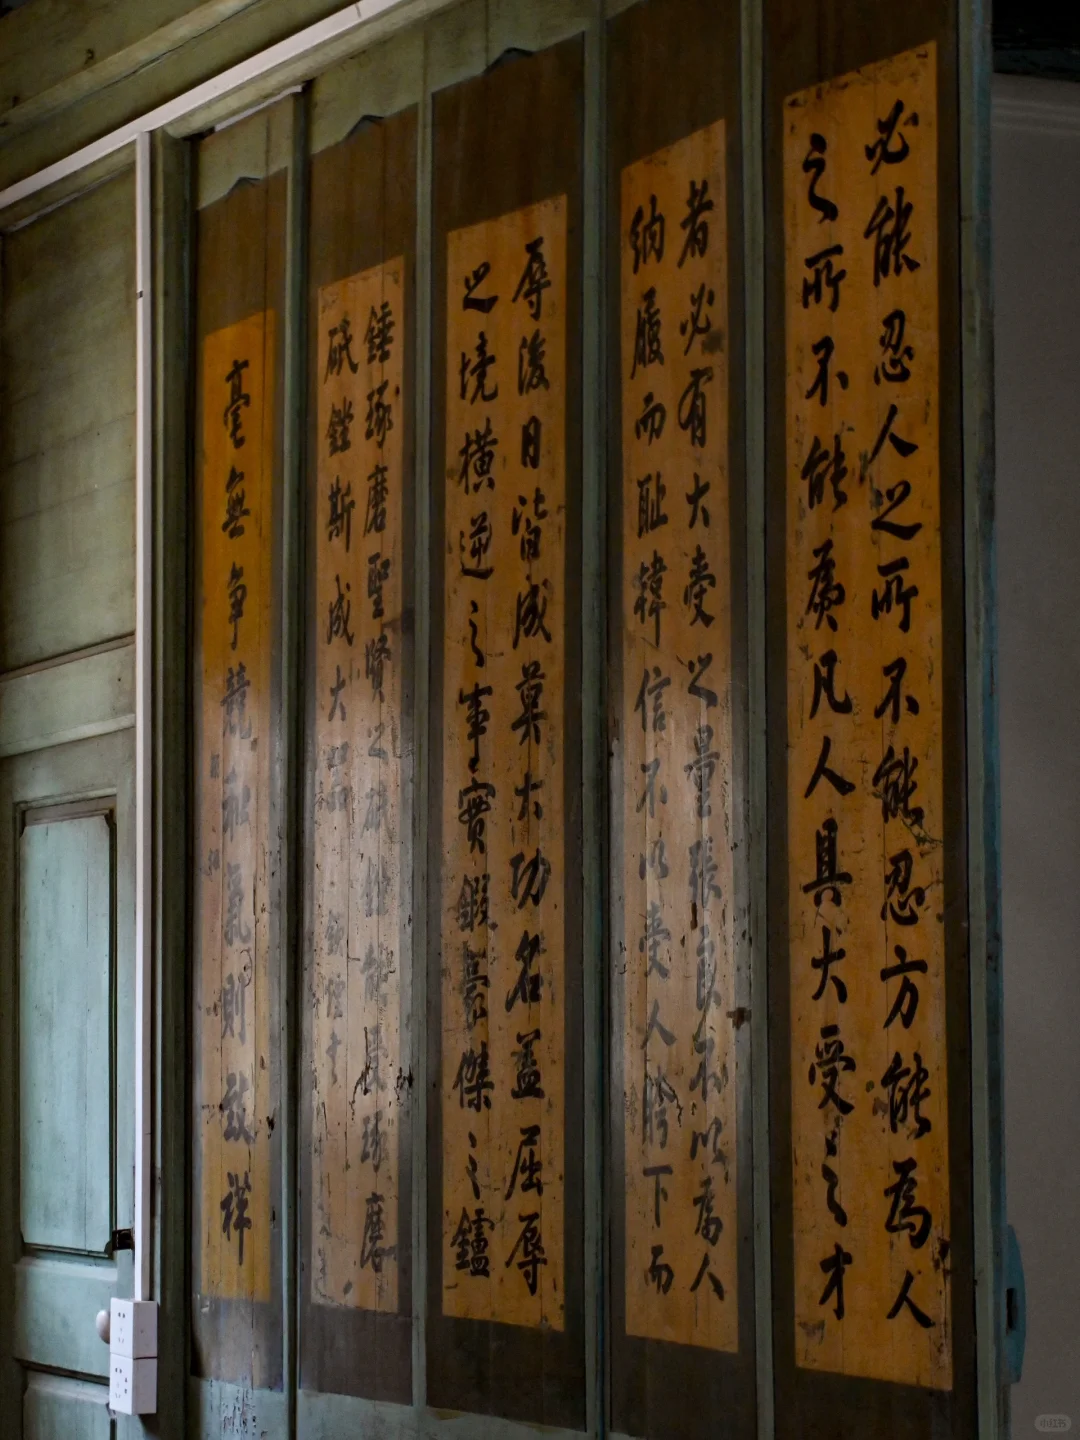 必能忍人之所不能忍方能為人
之所不能為凡人具大受之才
者必有大受之量張良不以為人
納履而耻韓信不以受人胯下而
辱後日皆成莫大功名蓋屈辱
之境橫逆之事實鍛豪傑之鑪
錘琢磨聖賢之能琢磨
砥斯成大
毫無爭競和氣則致祥
小红书